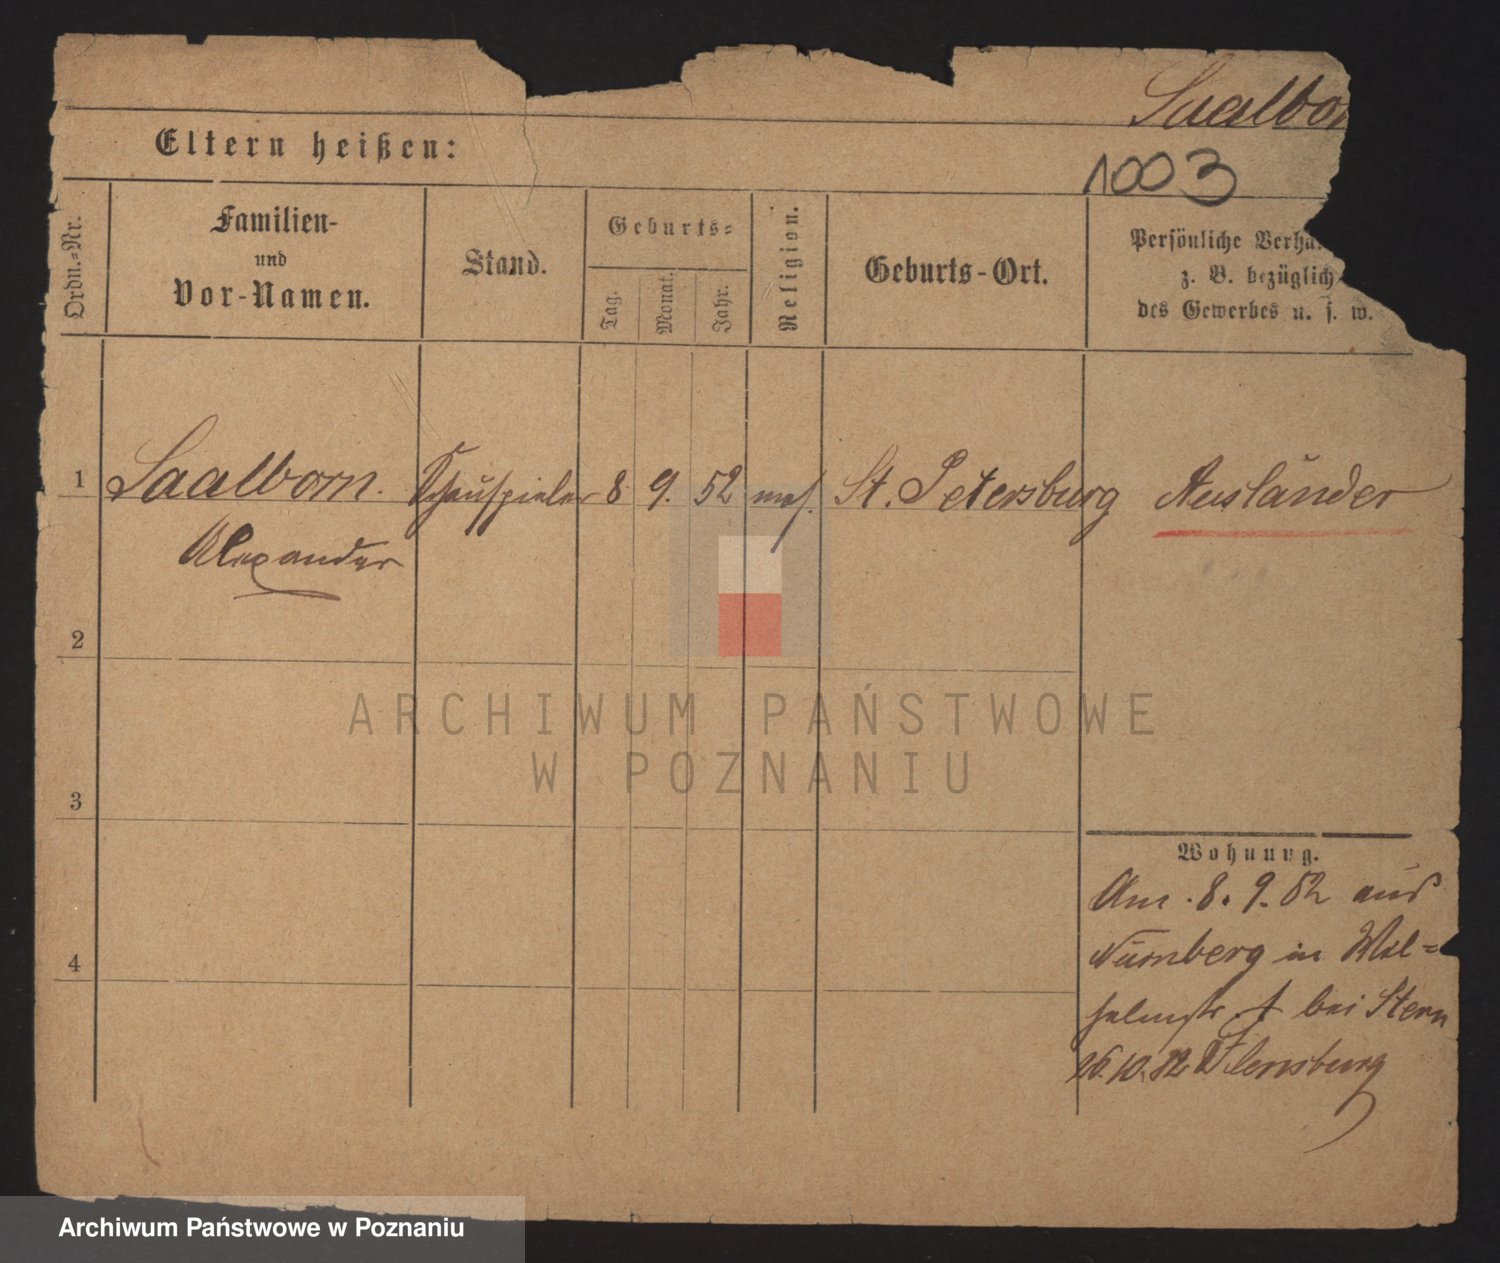 Saalbor
1003
Eltern heißen:
Ordn.-Nr.
Familien-
und
Vor-Namen.
Stand.
Geburts-
Tag.
Monat.
Jahr.
Religion.
Geburts-Ort.
Persönliche Verhä
z. B. bezüglich
des Gewerbes u. s. w.
1 Saalborn. Schauspieler 8 9. 52 mos. St. Petersburg Ausländer
Alexander
2
3
4
ARCHIWUM PAŃSTWOWE
W POZNANIU
Wohnung.
Am 8. 9. 82 aus
Nürnberg in Wil=
helmstr bei Stern
26. 10. 82 Flensburg
Archiwum Państwowe w Poznaniu